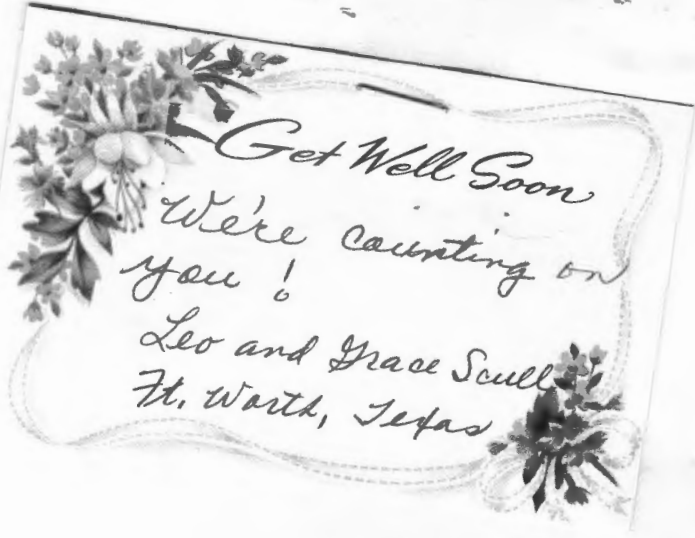 Get Well Soon
We're counting on
you!
Leo and Grace Scull
Ft. Worth, Texas